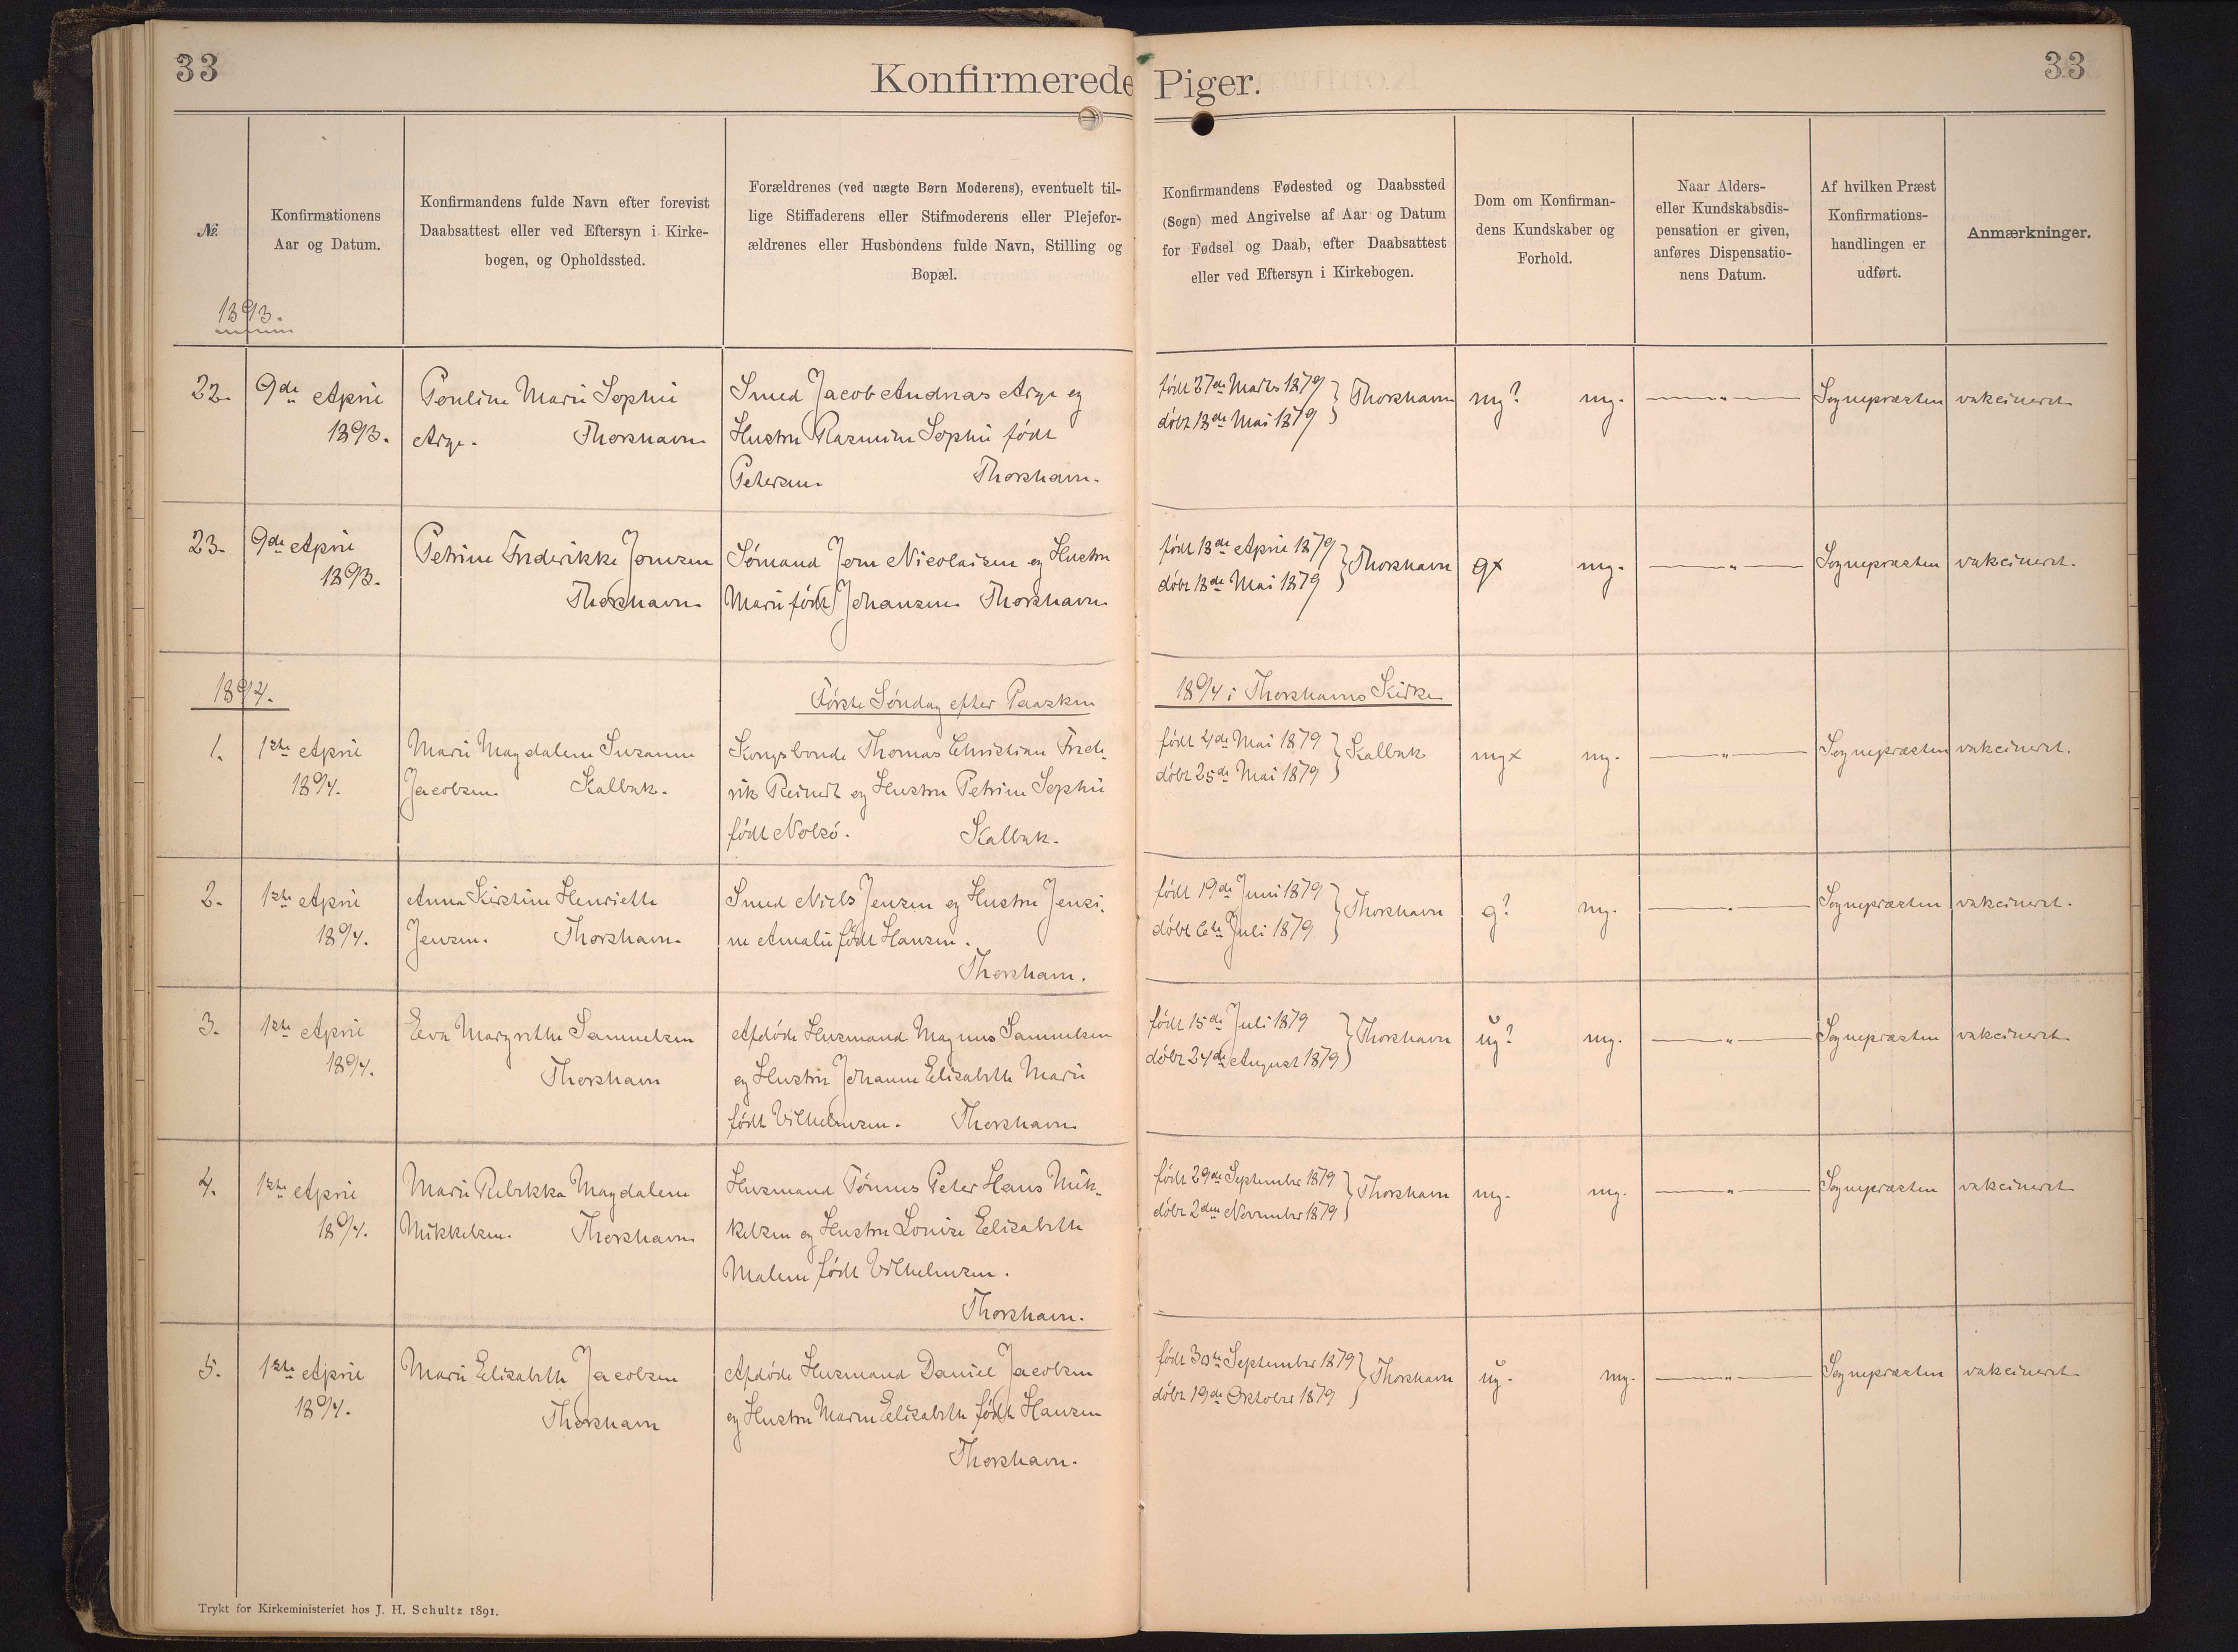 33
Konfirmerede Piger.
33
№.
Konfirmationens
Aar og Datum.
Konfirmandens fulde Navn efter forevist
Daabsattest eller ved Eftersyn i Kirke-
bogen, og Opholdssted.
Forældrenes (ved uægte Børn Moderens), eventuelt til-
lige Stiffaderens eller Stifmoderens eller Plejefor-
ældrenes eller Husbondens fulde Navn, Stilling og
Bopæl.
Konfirmandens Fødested og Daabssted
(Sogn) med Angivelse af Aar og Datum
for Fødsel og Daab, efter Daabsattest
eller ved Eftersyn i Kirkebogen.
Dom om Konfirman-
dens Kundskaber og
Forhold.
Naar Alders-
eller Kundskabsdis-
pensation er given,
anføres Dispensatio-
nens Datum.
Af hvilken Præst
Konfirmations-
handlingen er
udført.
Anmærkninger.
1893.
22.
9de April
1893.
Pouline Marie Sophie
Arge. Thorshavn
Smed Jacob Andreas Arge og
Hustru Rasmine Sophie født
Petersen. Thorshavn.
født 27de Marts 1879
døbt 18de Mai 1879
Thorshavn
mg? mg.
— " —
Sognepræsten
vakcineret
23.
9de April
1893.
Petrine Frederikke Joensen
Thorshavn
Sømand Joen Nicolaisen og Hustru
Marie født Johansen Thorshavn
født 18de April 1879
døbt 18de Mai 1879
Thorshavn
gx mg.
— " —
Sognepræsten
vakcineret.
1894.
Første Søndag efter Paasken
1894 i Thorshavns Kirke
1.
1ste April
1894.
Marie Magdalene Susanne
Jacobsen Kalbak.
Kongsbonde Thomas Christian Frede-
rik Reinert og Hustru Petrine Sophie
født Nolsø. Kalbak.
født 4de Mai 1879
døbt 25de Mai 1879
Kalbak
mgx mg.
— " —
Sognepræsten
vakcineret.
2.
1ste April
1894.
Anna Kirstine Henriette
Jensen. Thorshavn.
Smed Niels Jensen og Hustru Jensi-
ne Amalie født Hansen.
Thorshavn.
født 19de Juni 1879
døbt 6te Juli 1879
Thorshavn
g? mg.
— " —
Sognepræsten
vakcineret.
3.
1ste April
1894.
Eva Margrethe Samuelsen
Thorshavn
Afdøde Husmand Magnus Samuelsen
og Hustru Johanne Elisabeth Marie
født Vilhelmsen. Thorshavn
født 15de Juli 1879
døbt 24de August 1879
Thorshavn
ug? mg.
— " —
Sognepræsten
vakcineret
4.
1ste April
1894.
Marie Rebekka Magdalene
Mikkelsen. Thorshavn
Husmand Tønnes Peter Hans Mik-
kelsen og Hustru Louise Elisabeth
Malene født Vilhelmsen.
Thorshavn.
født 29de September 1879
døbt 2den November 1879
Thorshavn
mg. mg.
— " —
Sognepræsten
vakcineret
5.
1ste April
1894.
Marie Elisabeth Jacobsen
Thorshavn
Afdøde Husmand Daniel Jacobsen
og Hustru Maren Elisabeth født Hansen
Thorshavn.
født 30te September 1879
døbt 19de Oktober 1879
Thorshavn
ug. mg.
— " —
Sognepræsten
vakcineret
Trykt for Kirkeministeriet hos J. H. Schultz 1891.